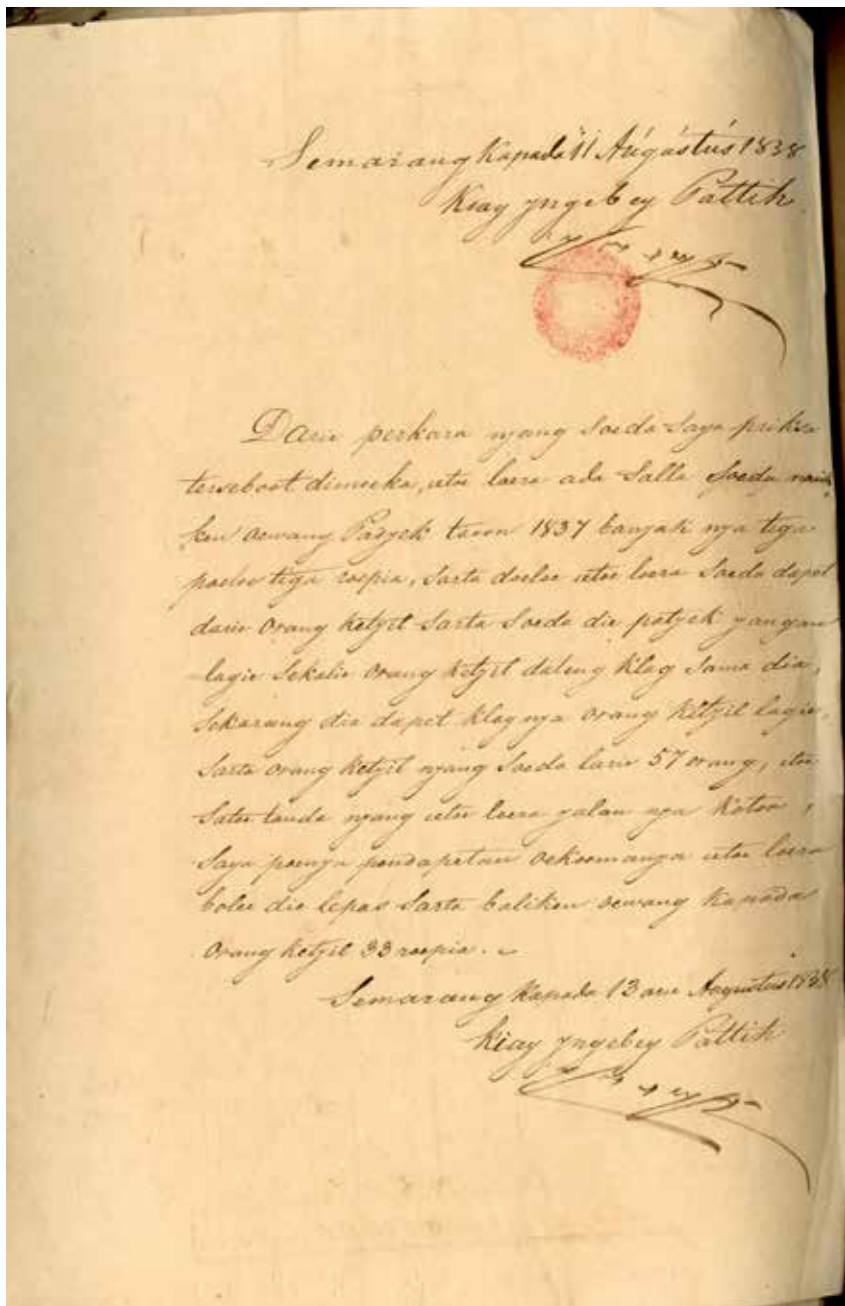 Semarang Kapada 11 Augústús 1838
Kiay yngebey Pattih
Darie perkara njang soeda saya priksa
terseboot dimoeka, itoe loera ada salla soeda naik
ken oewang Padjek taoon 1837 banjak nja tiga
poeloe tiga roepia, sarta doeloe itoe loera soeda dapet
darie orang ketjil sarta soeda die patjek yangan
lagie sekalie orang ketjil dateng klag sama dia,
sekarang dia dapet klag nja orang ketjil lagie,
sarta orang ketjil njang soeda larie 57 orang, itoe
satoe tanda njang itoe loera yalan nja kotor,
saya poenja pendapetan oekoemanga itoe loera
bolee die lepas sarta baliken oewang kapada
orang ketjil 33 roepia.
Semarang Kapada 13 arie Augustus 1838
Kiay yngebey Pattih